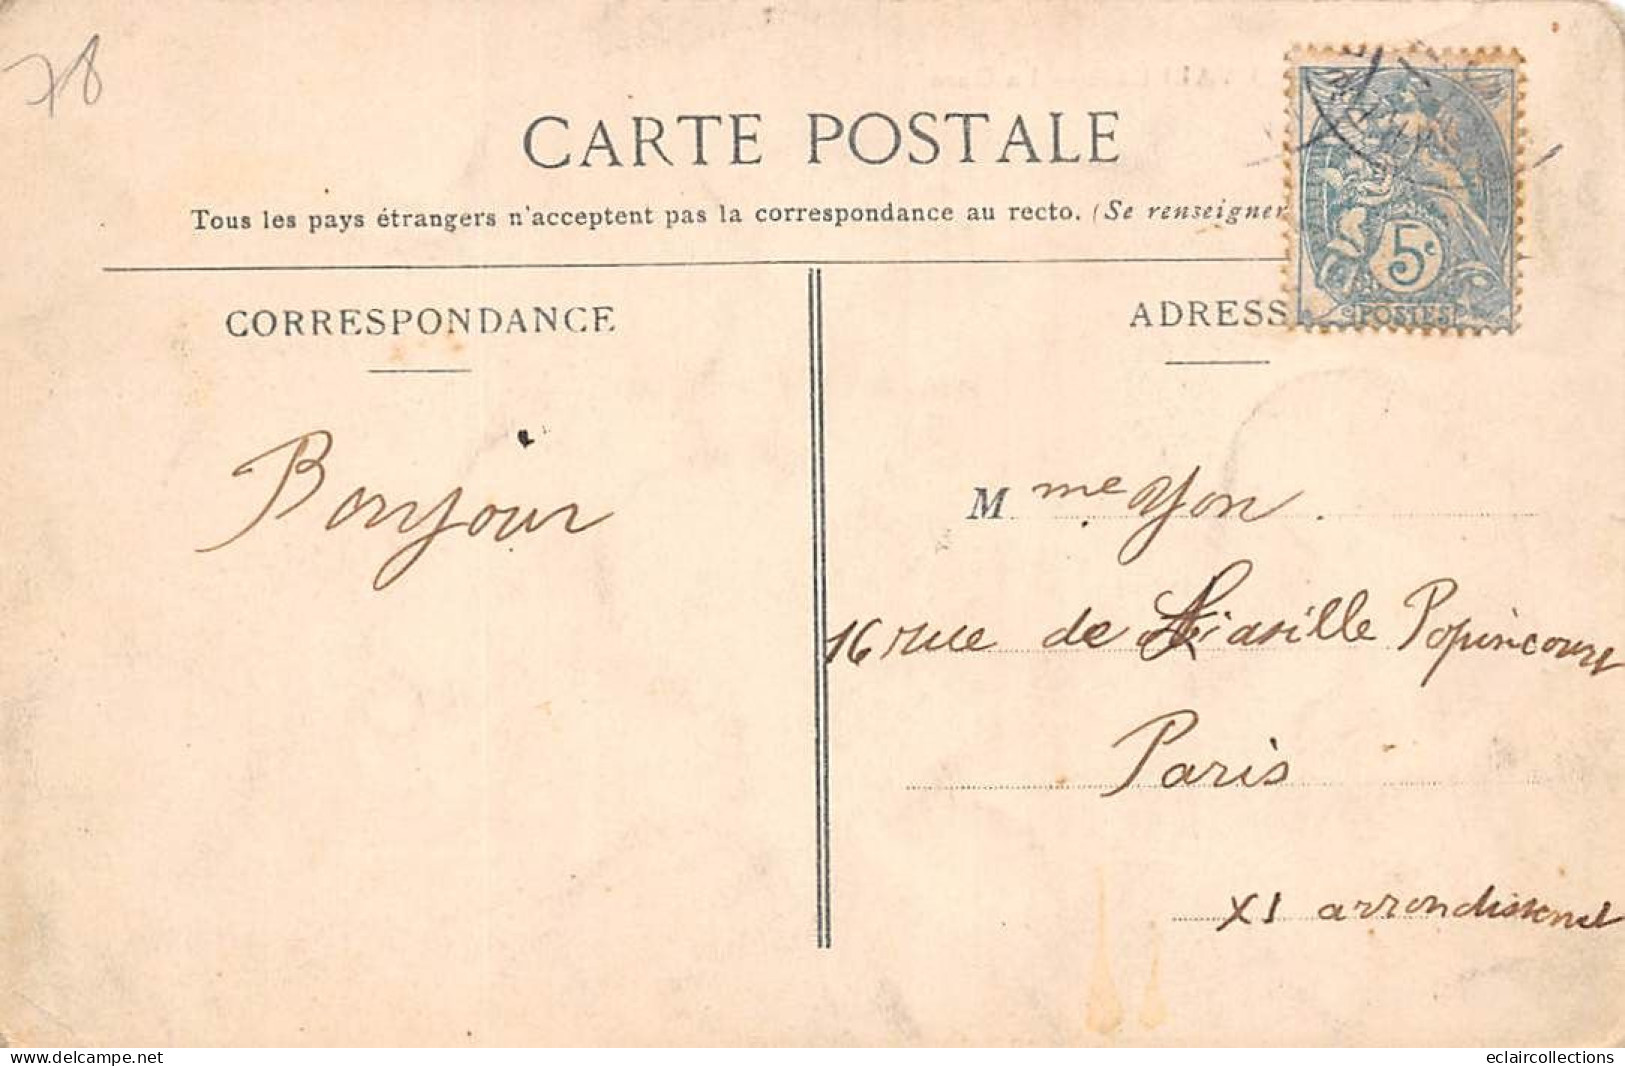 78
CARTE POSTALE
Tous les pays étrangers n'acceptent pas la correspondance au recto. (Se renseigner
CORRESPONDANCE
ADRESS
5c
POSTES
Bonjour
Mme Yon.
16 rue de Popincourt
Paris
XI arrondissement
www.delcampe.net
eclaircollections